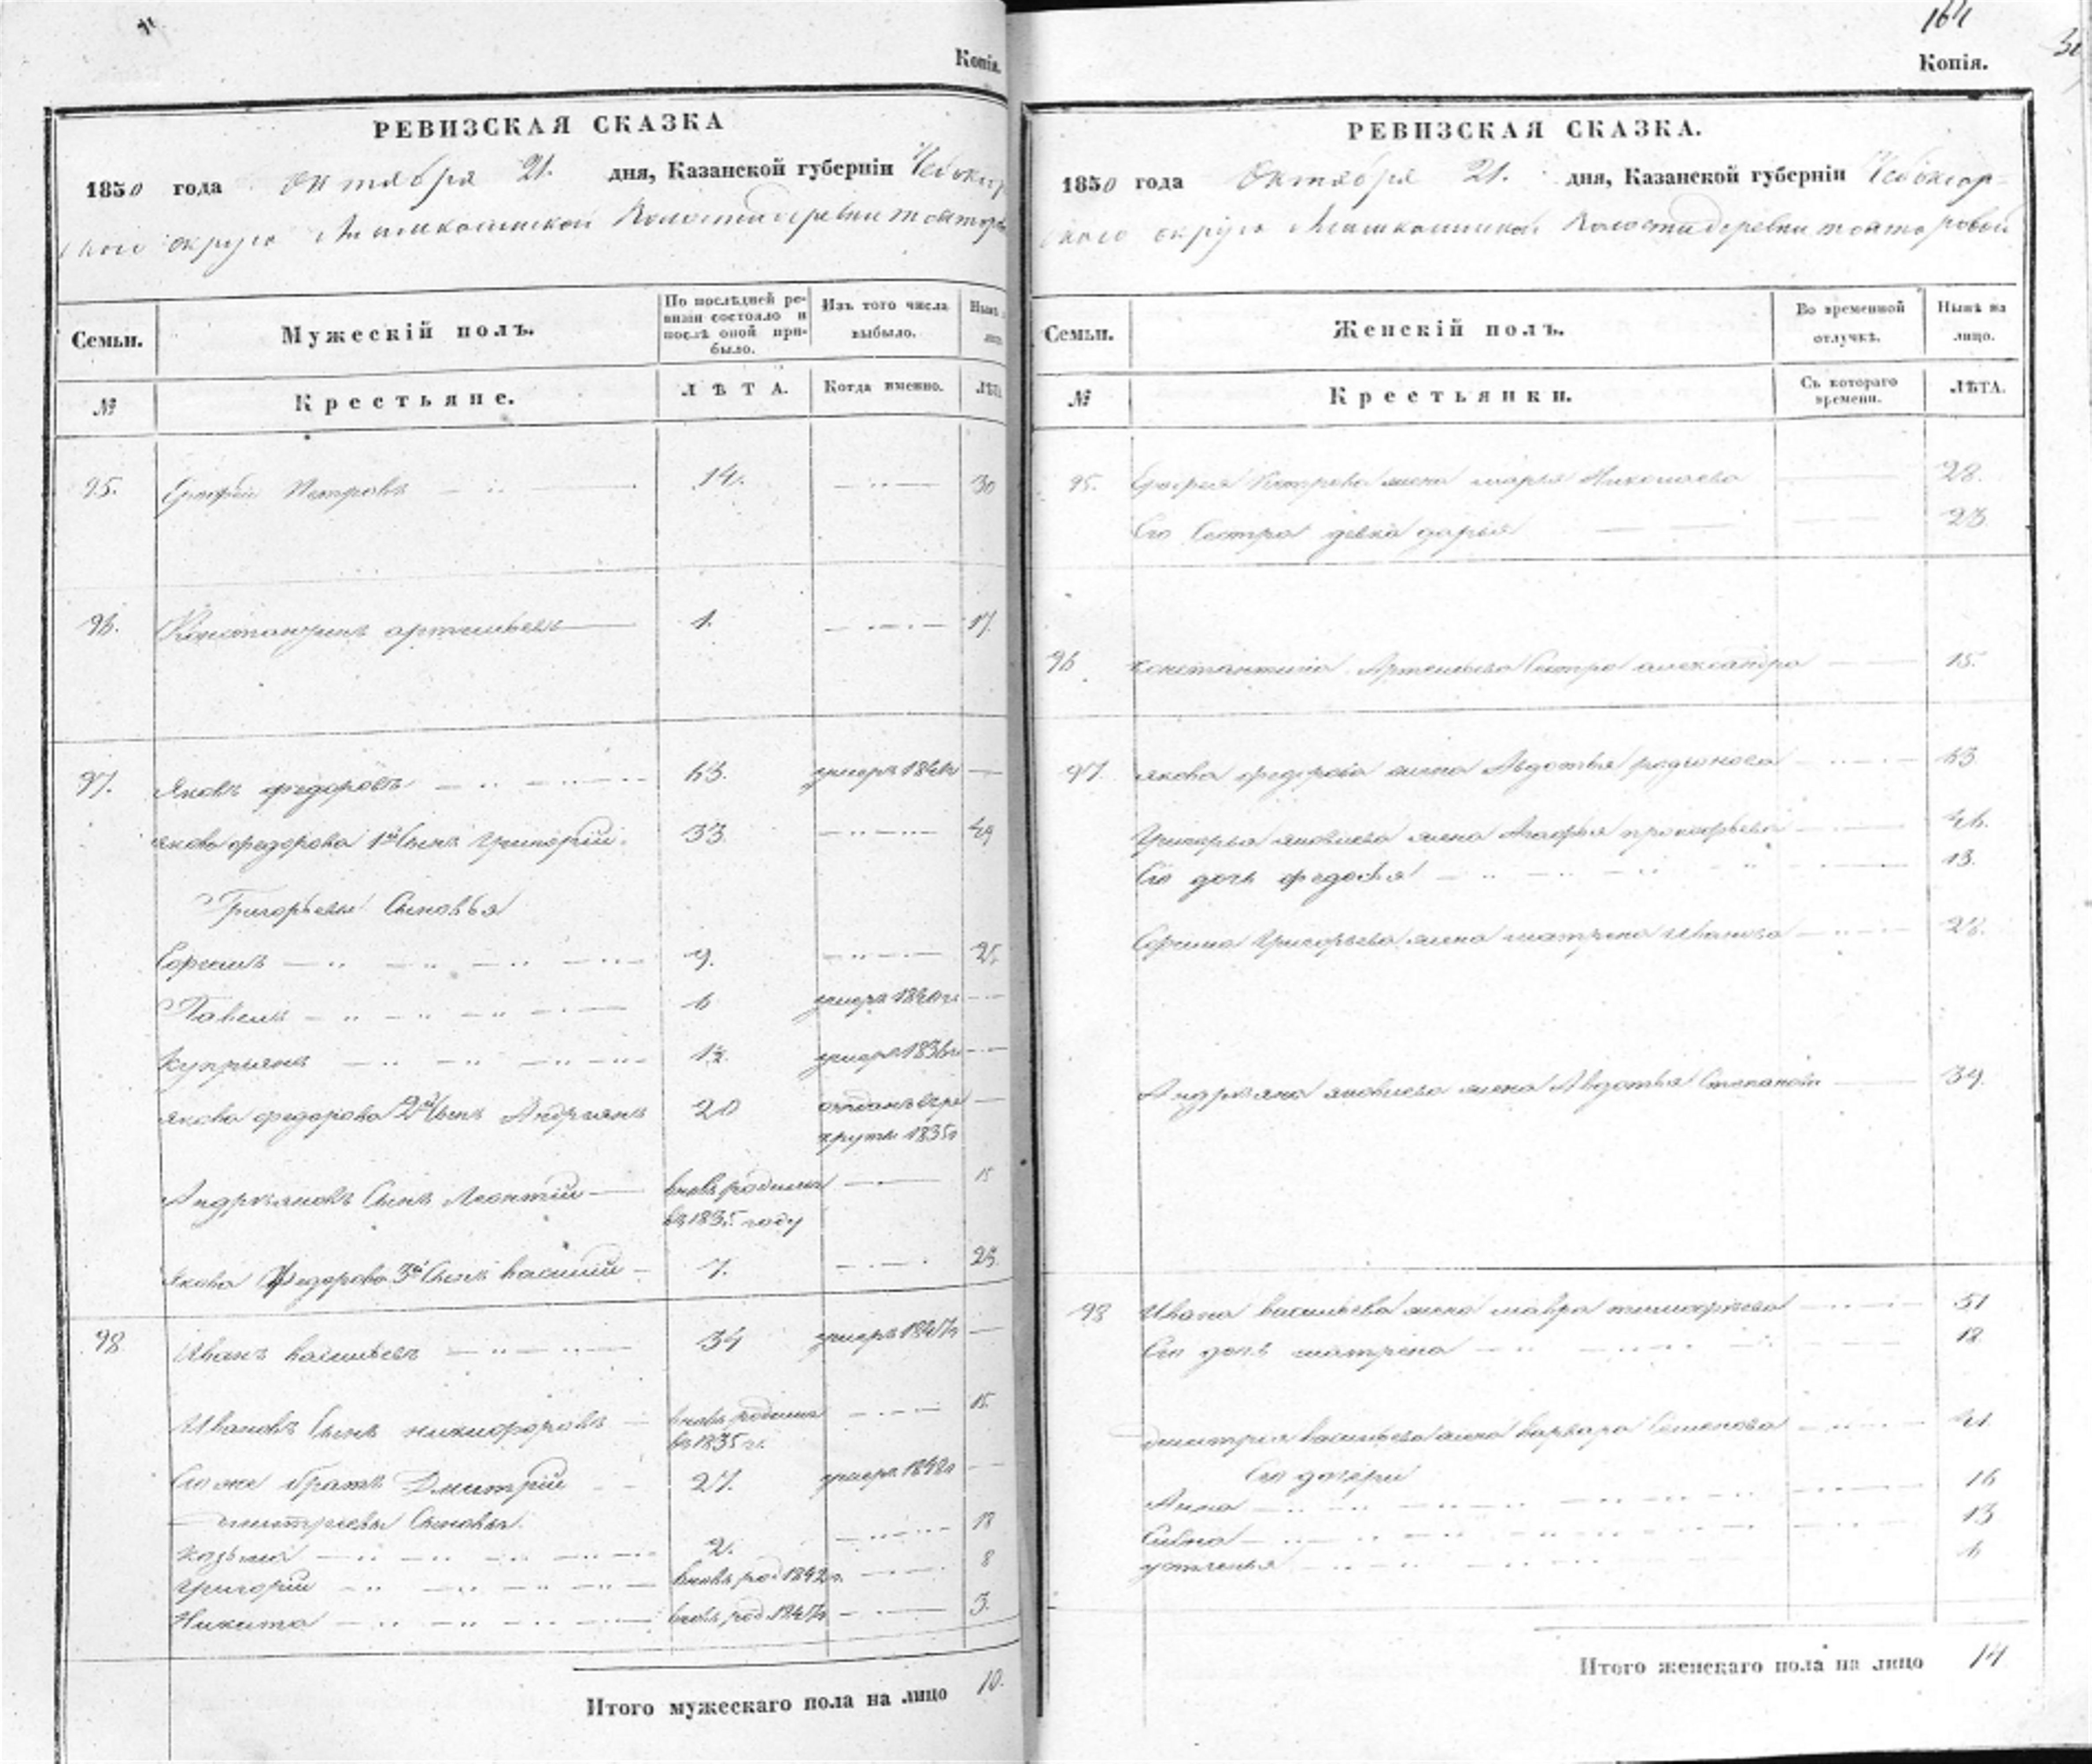 Копія.
РЕВИЗСКАЯ СКАЗКА
1850 года октября 21. дня, Казанской губерніи Чебоксар
ского округа волости деревни
Семьи. Мужескій полъ. По послѣдней ревизіи состояло и послѣ оной прибыло. Изъ того числа выбыло. Нынѣ
№ Крестьяне. ЛѢТА. Когда именно. ЛѢТА
95. Петровъ 14. 30
96. Константинъ артемьевъ 1. 17.
97. Яковъ федоровъ 63. умеръ
Якова федорова 1й Сынъ Григорій. 33 49
Григорьевы Сыновья
9. 25
Павелъ 6 умеръ 1840
Куприянъ умеръ 1836
Якова федорова 2й Сынъ Андриянъ 20 отданъ в ре
круты 1835
Андреяновъ Сынъ Леонтій вновь родился 15
в 1835 году
Якова Федорова 3й Сынъ василій 7. 23
98 Иванъ васильевъ 34 умеръ
Ивановъ Сынъ никифоровъ вновь родился 15
в 1835 г.
Его же братъ Дмитрій 27. умеръ
Дмитріевы Сыновья
козьма 2. 18
Григорій вновь род 1842 г. 8
Никита вновь род. 1847 3.
Итого мужескаго пола на лицо 10.
164
Копія.
РЕВИЗСКАЯ СКАЗКА.
1850 года Октября 21. дня, Казанской губерніи Чебоксар
ского округа волости деревни
Семьи. Женскій полъ. Во временной отлучкѣ. Нынѣ на лицо.
№ Крестьянки. Съ котораго времени. ЛѢТА.
95. Петрова жена марья Николаева 28.
Его Сестра девка дарья 23
96 константина Артемьева Сестра александра 15.
97 якова федорова жена Авдотья родионова 63
Григорья яковлева жена Агафья прокофьева 46.
Его дочь федосья 13.
Григорьева жена матрена Иванова 28.
Андреяна яковлева жена Авдотья Степанова 39.
98 Ивана васильева жена мавра тимофеева 51
Его дочь матрена 18
дмитрия васильева жена варвара Семенова 41
Его дочери
Анна 16
13
устинья 6
Итого женскаго пола на лицо 14